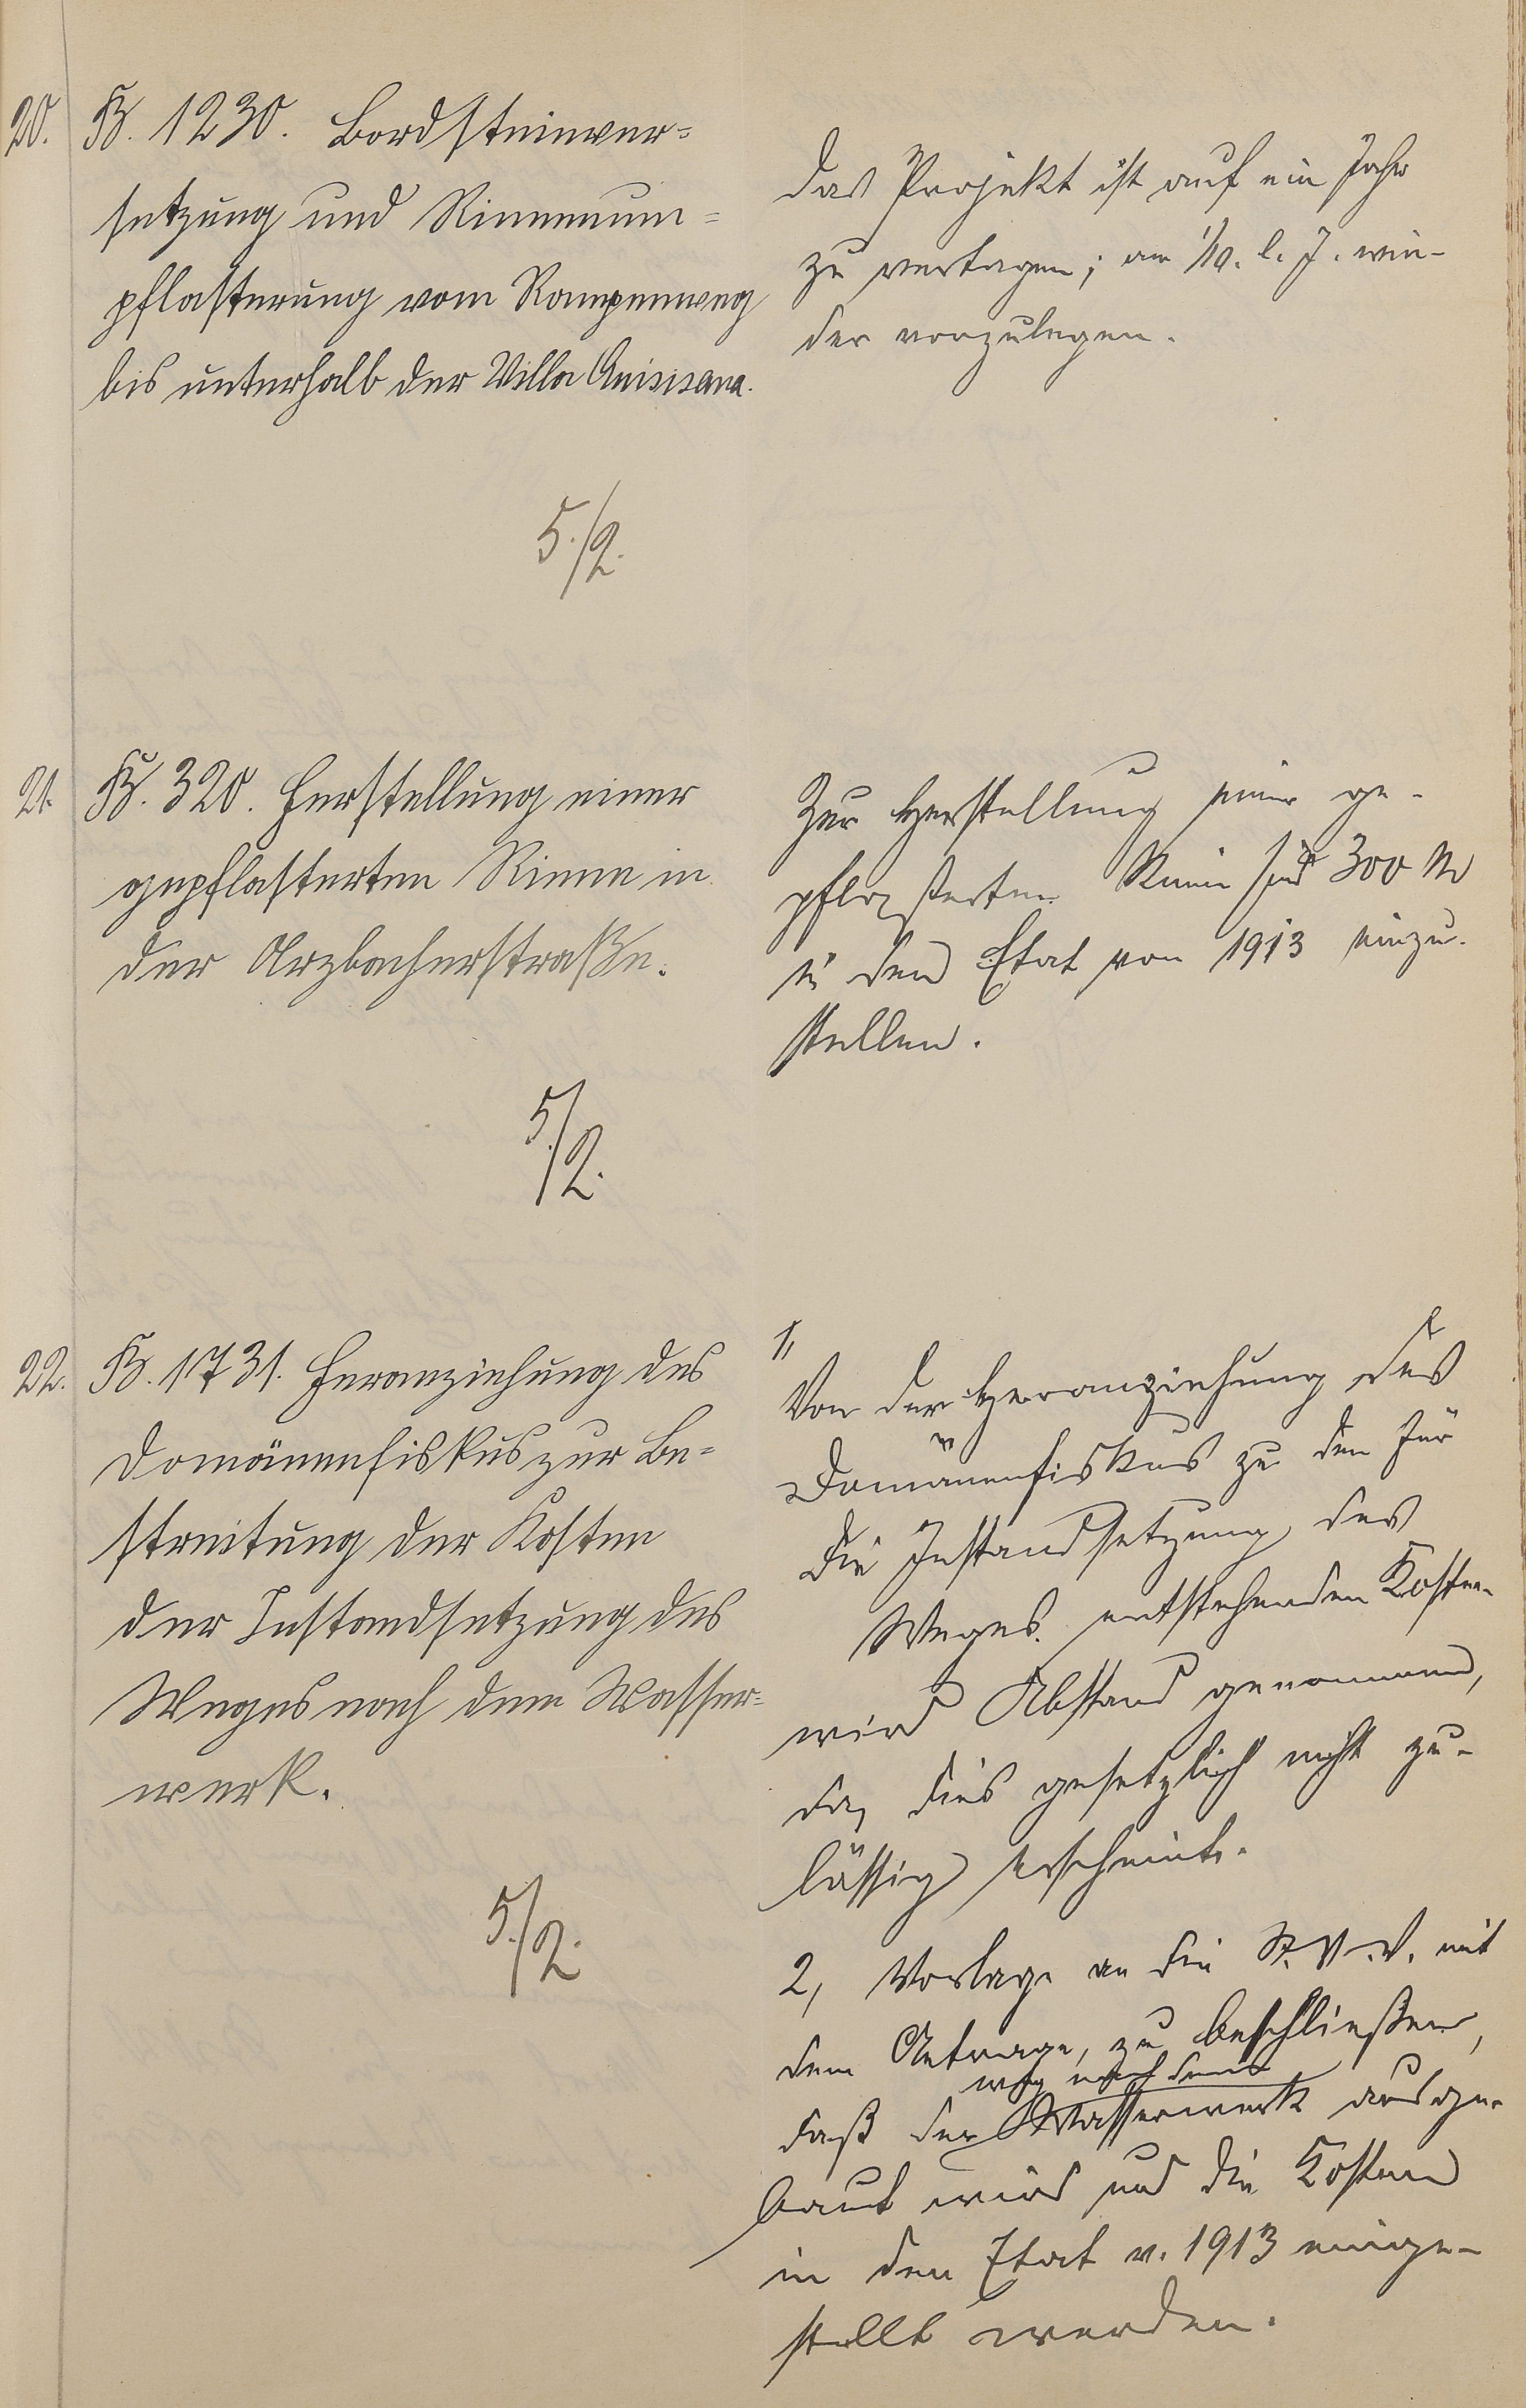 20. B. 1230. Bordsteinver-
setzung und Rinnenum-
pflasterung vom Rampenweg
bis unterhalb der Villa Anisisana.
5./2.
Das Projekt ist auf ein Jahr
zu vertagen; am 1/10. l. J. wie-
der vorzulegen.
21. B. 320. Herstellung einer
gepflasterten Rinne in
der Arzbacherstraße.
5./2.
Zur Herstellung einer ge-
pflasterten Rinne sind 300 M
in den Etat von 1913 einzu-
stellen.
22. B. 1731. Heranziehung des
Domänenfiskus zur Be-
streitung der Kosten
der Instandsetzung des
Weges nach dem Wasser-
werk.
5./2.
1,
Von der Heranziehung des
Domänenfiskus zu den für
die Instandsetzung des
Weges entstehenden Kosten
wird Abstand genommen,
da dies gesetzlich nicht zu-
lässig erscheint.
2, Vorlage an die St. V. V. mit
dem Antrage, zu beschließen,
weg nach dem
daß der Wasserwerk ausge-
baut wird und die Kosten
in den Etat v. 1913 einge-
stellt werden.